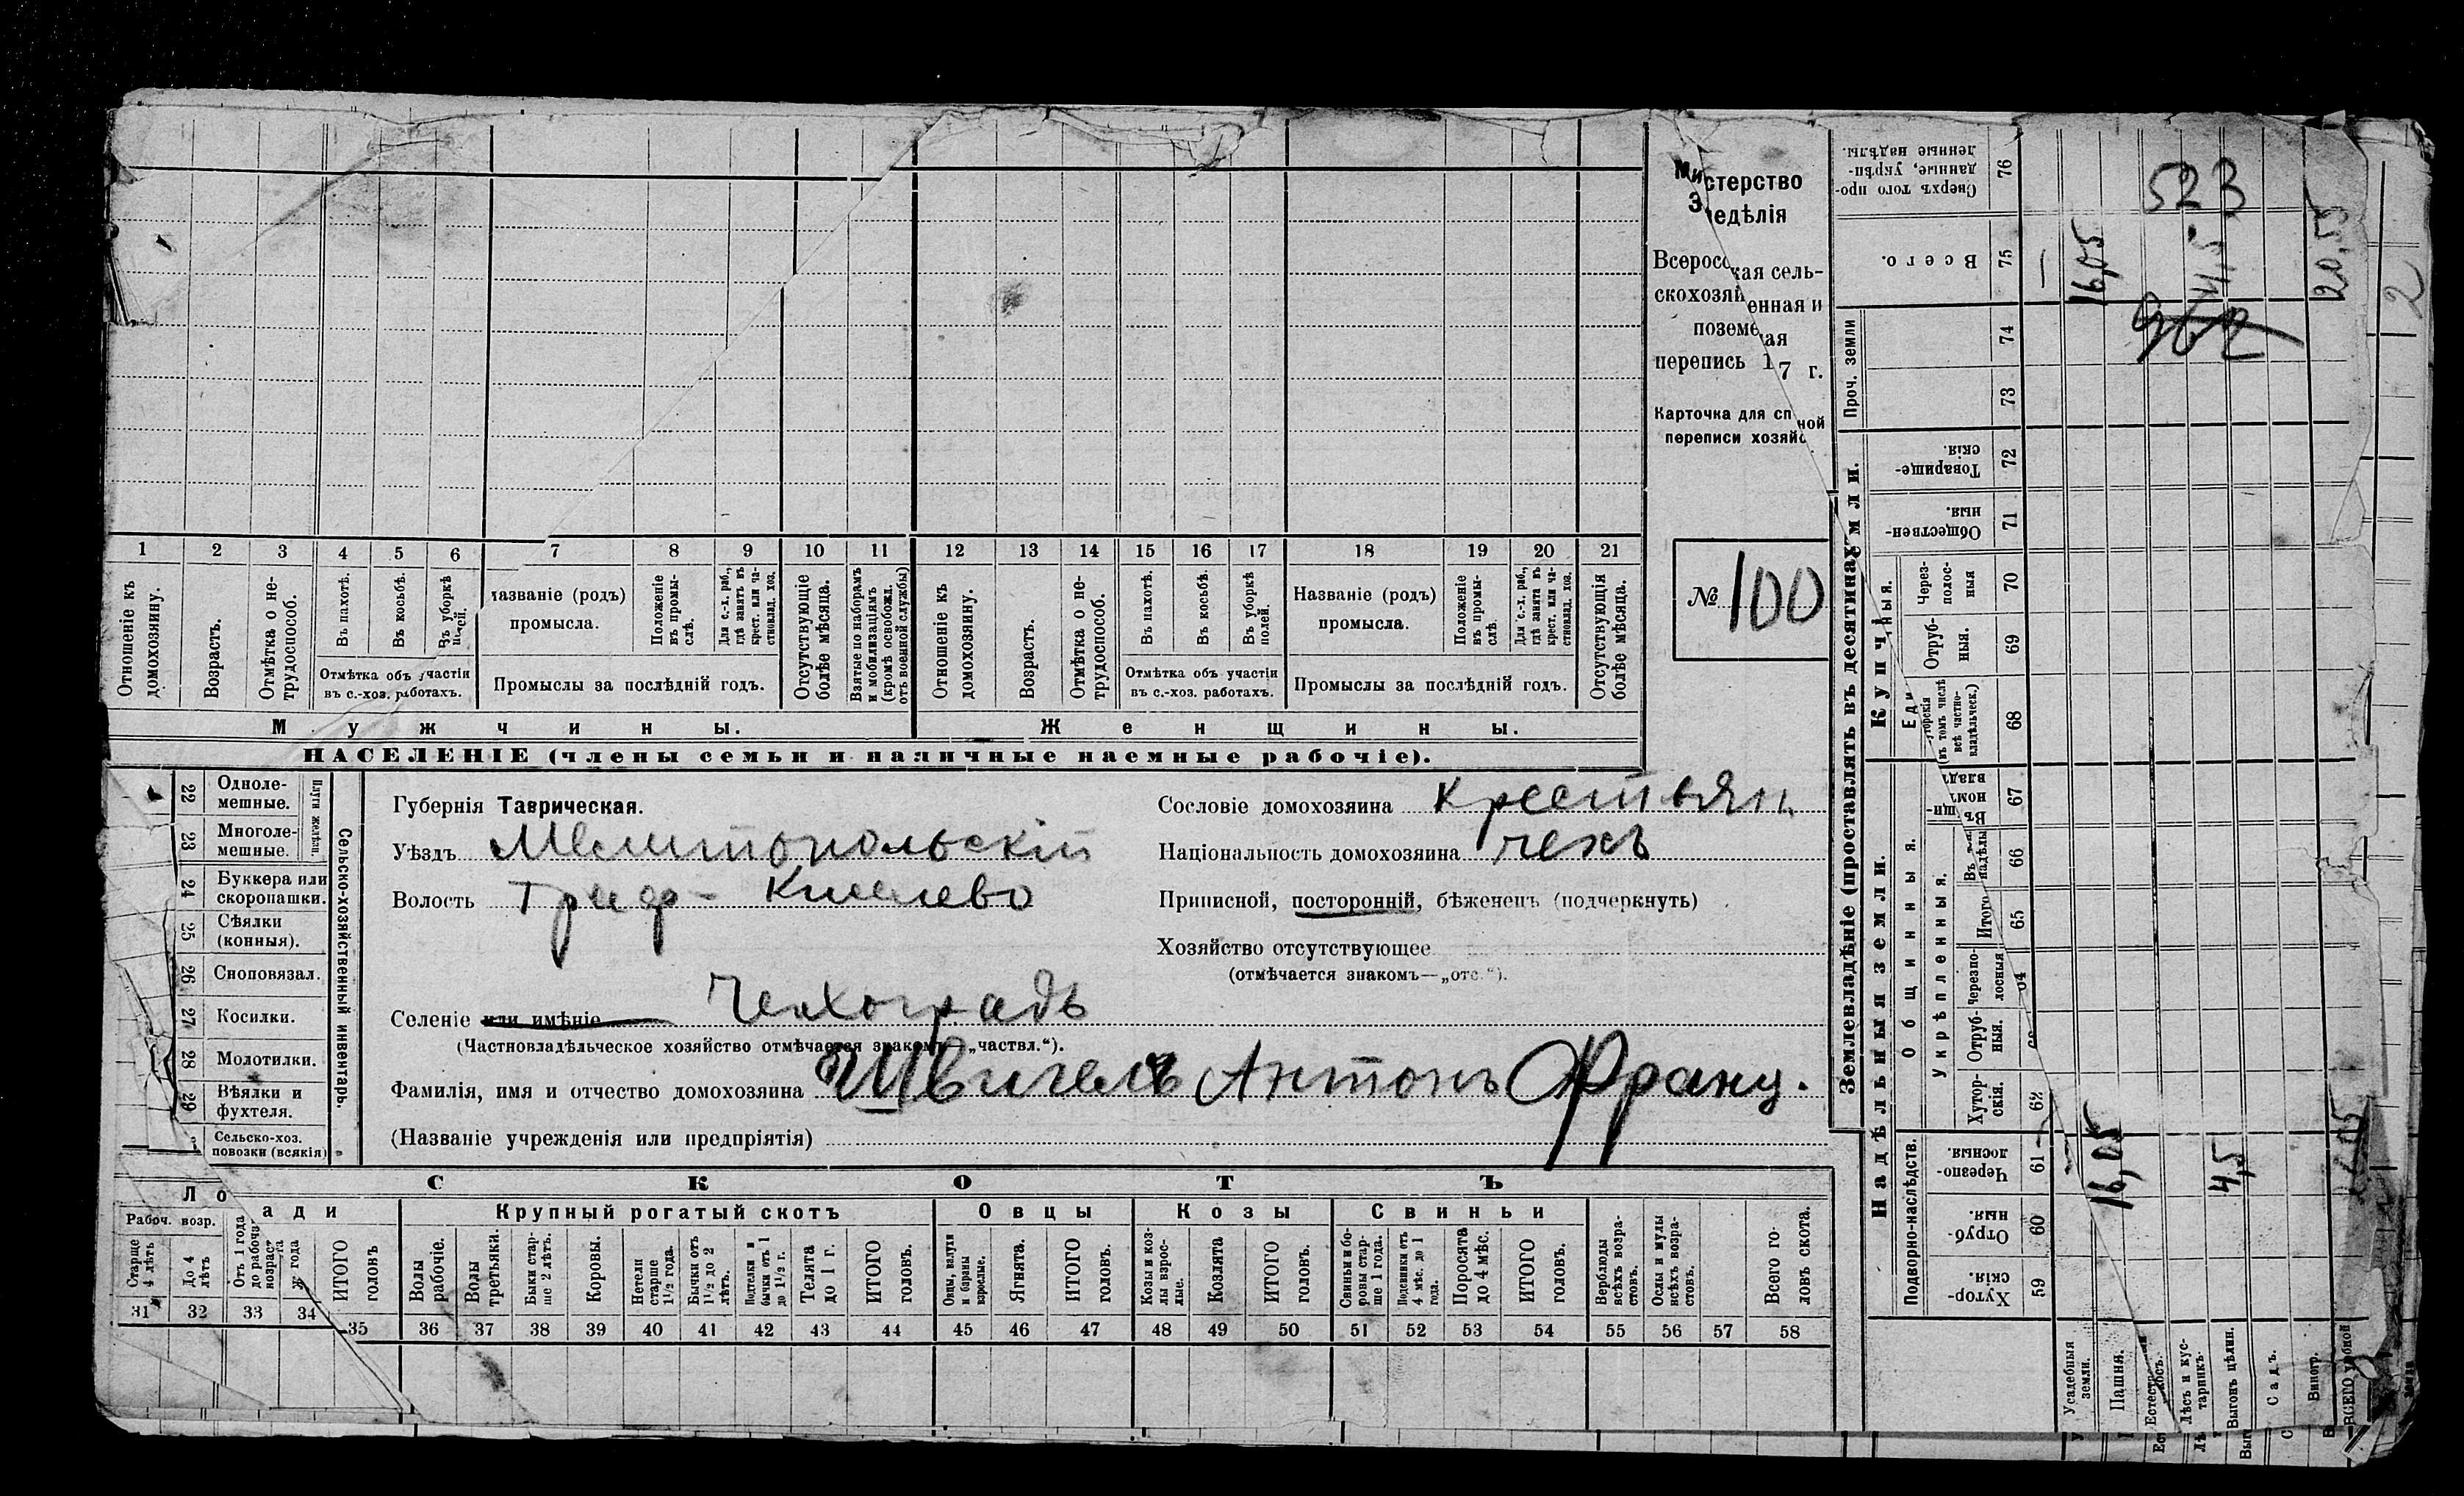 Министерство
Земледѣлія
Всероссійская сель-
скохозяйственная и
поземельная
перепись 1917 г.
Карточка для сп ной
переписи хозяйс
№ 100
1 2 3 4 5 6 7 8 9 10 11 12 13 14 15 16 17 18 19 20 21
Отношеніе къ домохозяину.
Возрастъ.
Отмѣтка о не-трудоспособ.
Въ пахотѣ.
Въ косьбѣ.
Въ уборкѣ полей.
Отмѣтка объ участіи
въ с.-хоз. работахъ.
Названіе (родъ)
промысла.
Положеніе въ промы-слѣ.
Для с.-х. раб., гдѣ занятъ въ крест. или ча-стновлад. хоз.
Промыслы за послѣдній годъ.
Отсутствующіе болѣе мѣсяца.
Взятые по наборамъ и мобилизаціямъ (кромѣ освобожд. отъ военной службы)
Отношеніе къ домохозяину.
Возрастъ.
Отмѣтка о не-трудоспособ.
Въ пахотѣ.
Въ косьбѣ.
Въ уборкѣ полей.
Отмѣтка объ участіи
въ с.-хоз. работахъ.
Названіе (родъ)
промысла.
Положеніе въ промы-слѣ.
Для с.-х. раб., гдѣ занята въ крест. или ча-стновлад. хоз.
Промыслы за послѣдній годъ.
Отсутствующія болѣе мѣсяца.
Мужчины.
Женщины.
НАСЕЛЕНІЕ (члены семьи и наличные наемные рабочіе).
22 Одноле-мешные.
23 Многоле-мешные.
Плуги желѣзн.
24 Буккера или скоропашки.
25 Сѣялки (конныя).
26 Сноповязал.
27 Косилки.
28 Молотилки.
29 Вѣялки и фухтеля.
Сельско-хоз. повозки (всякія)
Сельско-хозяйственный инвентарь.
Губернія Таврическая.
Уѣздъ Мелитопольскій
Волость Граф- Киселево
Селеніе или имѣніе Чехоградъ
(Частновладѣльческое хозяйство отмѣчается знакомъ—„частвл.“).
Фамилія, имя и отчество домохозяина Швигель Антонъ Франц.
(Названіе учрежденія или предпріятія)
Сословіе домохозяина крестьян.
Національность домохозяина чехъ
Приписной, посторонній, бѣженецъ (подчеркнуть)
Хозяйство отсутствующее
(отмѣчается знакомъ—„отс.“).
СКОТЪ
Ло ади
Рабоч. возр.
Старше 4 лѣтъ
До 4 лѣтъ
Отъ 1 года до рабоч. возраста
ИТОГО головъ
Крупный рогатый скотъ
Волы рабочіе.
Волы третьяки.
Быки стар-ше 2 лѣтъ.
Коровы.
Нетели старше 1½ года.
Бычки отъ 1½ до 2 лѣтъ.
Подтелки и бычки отъ 1 до 1½ г.
Телята до 1 г.
ИТОГО головъ.
Овцы
Овцы, валухи и бараны взрослые.
Ягнята.
ИТОГО головъ.
Козы
Козы и коз-лы взрос-лые.
Козлята
ИТОГО головъ.
Свиньи
Свиньи и бо-ровы стар-ше 1 года.
Подсвинки отъ 4 мѣс. до 1 года.
Поросята до 4 мѣс.
ИТОГО головъ.
Верблюды всѣхъ возра-стовъ.
Ослы и мулы всѣхъ возра-стовъ.
Всего го-ловъ скота.
31 32 33 34 35 36 37 38 39 40 41 42 43 44 45 46 47 48 49 50 51 52 53 54 55 56 57 58
Землевладѣніе (проставлять въ десятинахъ
Надѣльныя земли.
Подворно-наслѣдств.
Хутор-скія. 59
Отруб-ныя. 60
Черезпо-лосныя. 61
Общинныя.
Укрѣпленныя.
Хутор-скія. 62
Отруб-ныя.
Черезпо-лосныя
Итого 65
66
67
Купчія земли.
(въ томъ числѣ всѣ частно-владѣльческ.) 68
Отруб-ныя. 69
Через-полос-ныя 70
Обществен-ныя. 71
Товарище-скія. 72
Проч. земли
73 74
Всего. 75
Сверхъ того про-данные, укрѣп-ленные надѣлы. 76
Усадебныя земли.
Пашня. 16,05 16,05
Лѣсъ и кус-тарникъ.
Выгонъ цѣлин. 4,5 4,5
Садъ.
Виногр.
ВСЕГО удобной 20,55
523
962
2